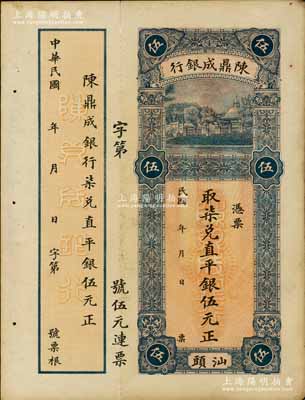 上海陽明拍賣
www.yangmingauction.com
伍
伍
行銀成鼎陳
伍
伍
憑票
取柒兑直平銀伍元正
民國 年 月 日 票
伍
伍
頭汕
字第 號伍元連票
陳鼎成銀行柒兑直平銀伍元正
中華民國 年 月 日 字第 號票根
上海陽明拍賣